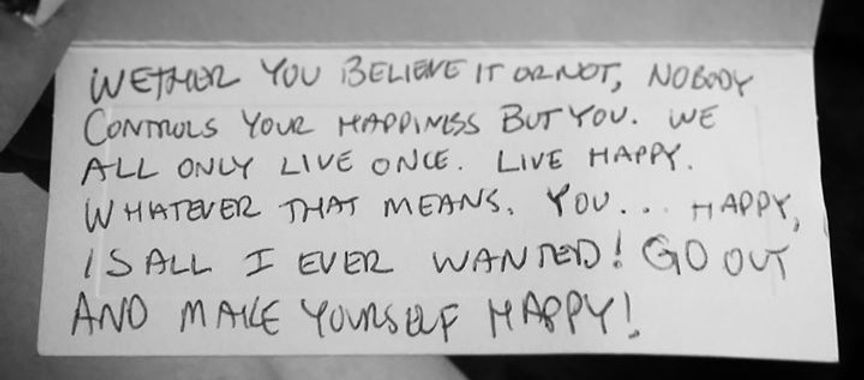 WETHER YOU BELIEVE IT OR NOT, NOBODY
CONTROLS YOUR HAPPINESS BUT YOU. WE
ALL ONLY LIVE ONCE. LIVE HAPPY.
WHATEVER THAT MEANS. YOU... HAPPY,
IS ALL I EVER WANTED! GO OUT
AND MAKE YOURSELF HAPPY!